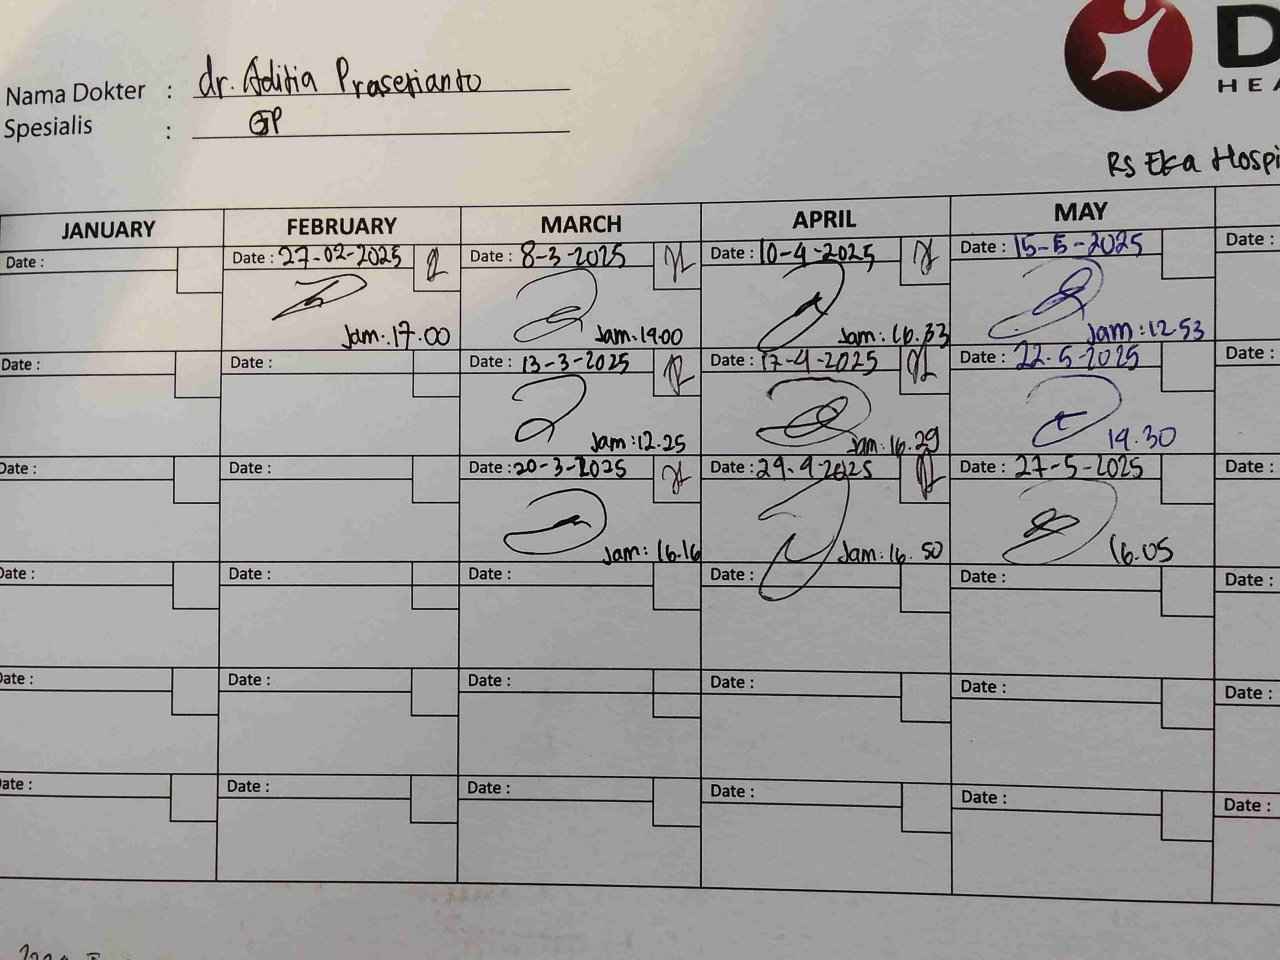 Nama Dokter : dr. Aditia Prasetianto
Spesialis : GP
D
HEA
Rs Eka Hospi
JANUARY FEBRUARY MARCH APRIL MAY
Date : Date : 27-02-2025 Date : 8-3-2025 Date : 10-4-2025 Date : 15-5-2025 Date :
Jam : 17.00 Jam : 19.00 Jam : 16.33 Jam : 12.53
Date : Date : Date : 13-3-2025 Date : 17-4-2025 Date : 22-5-2025 Date :
Jam : 12.25 Jam : 16.29 19.30
Date : Date : Date : 20-3-2025 Date : 29-4-2025 Date : 27-5-2025 Date :
Jam : 16.16 Jam : 16.50 16.05
Date : Date : Date : Date : Date : Date :
Date : Date : Date : Date : Date : Date :
ate : Date : Date : Date : Date : Date :